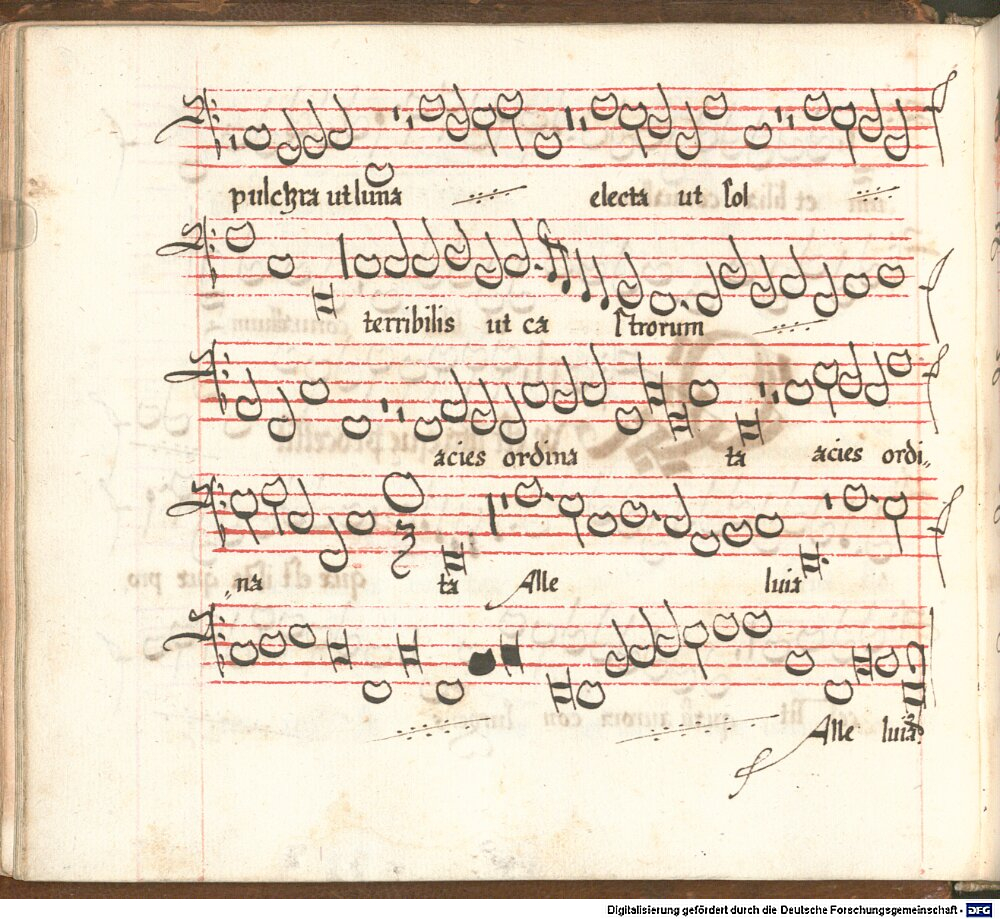 pulchra ut luna electa ut sol
terribilis ut ca strorum
acies ordina ta acies ordi„
„na ta Alle luia
Alle luia
Digitalisierung gefördert durch die Deutsche Forschungsgemeinschaft - DFG